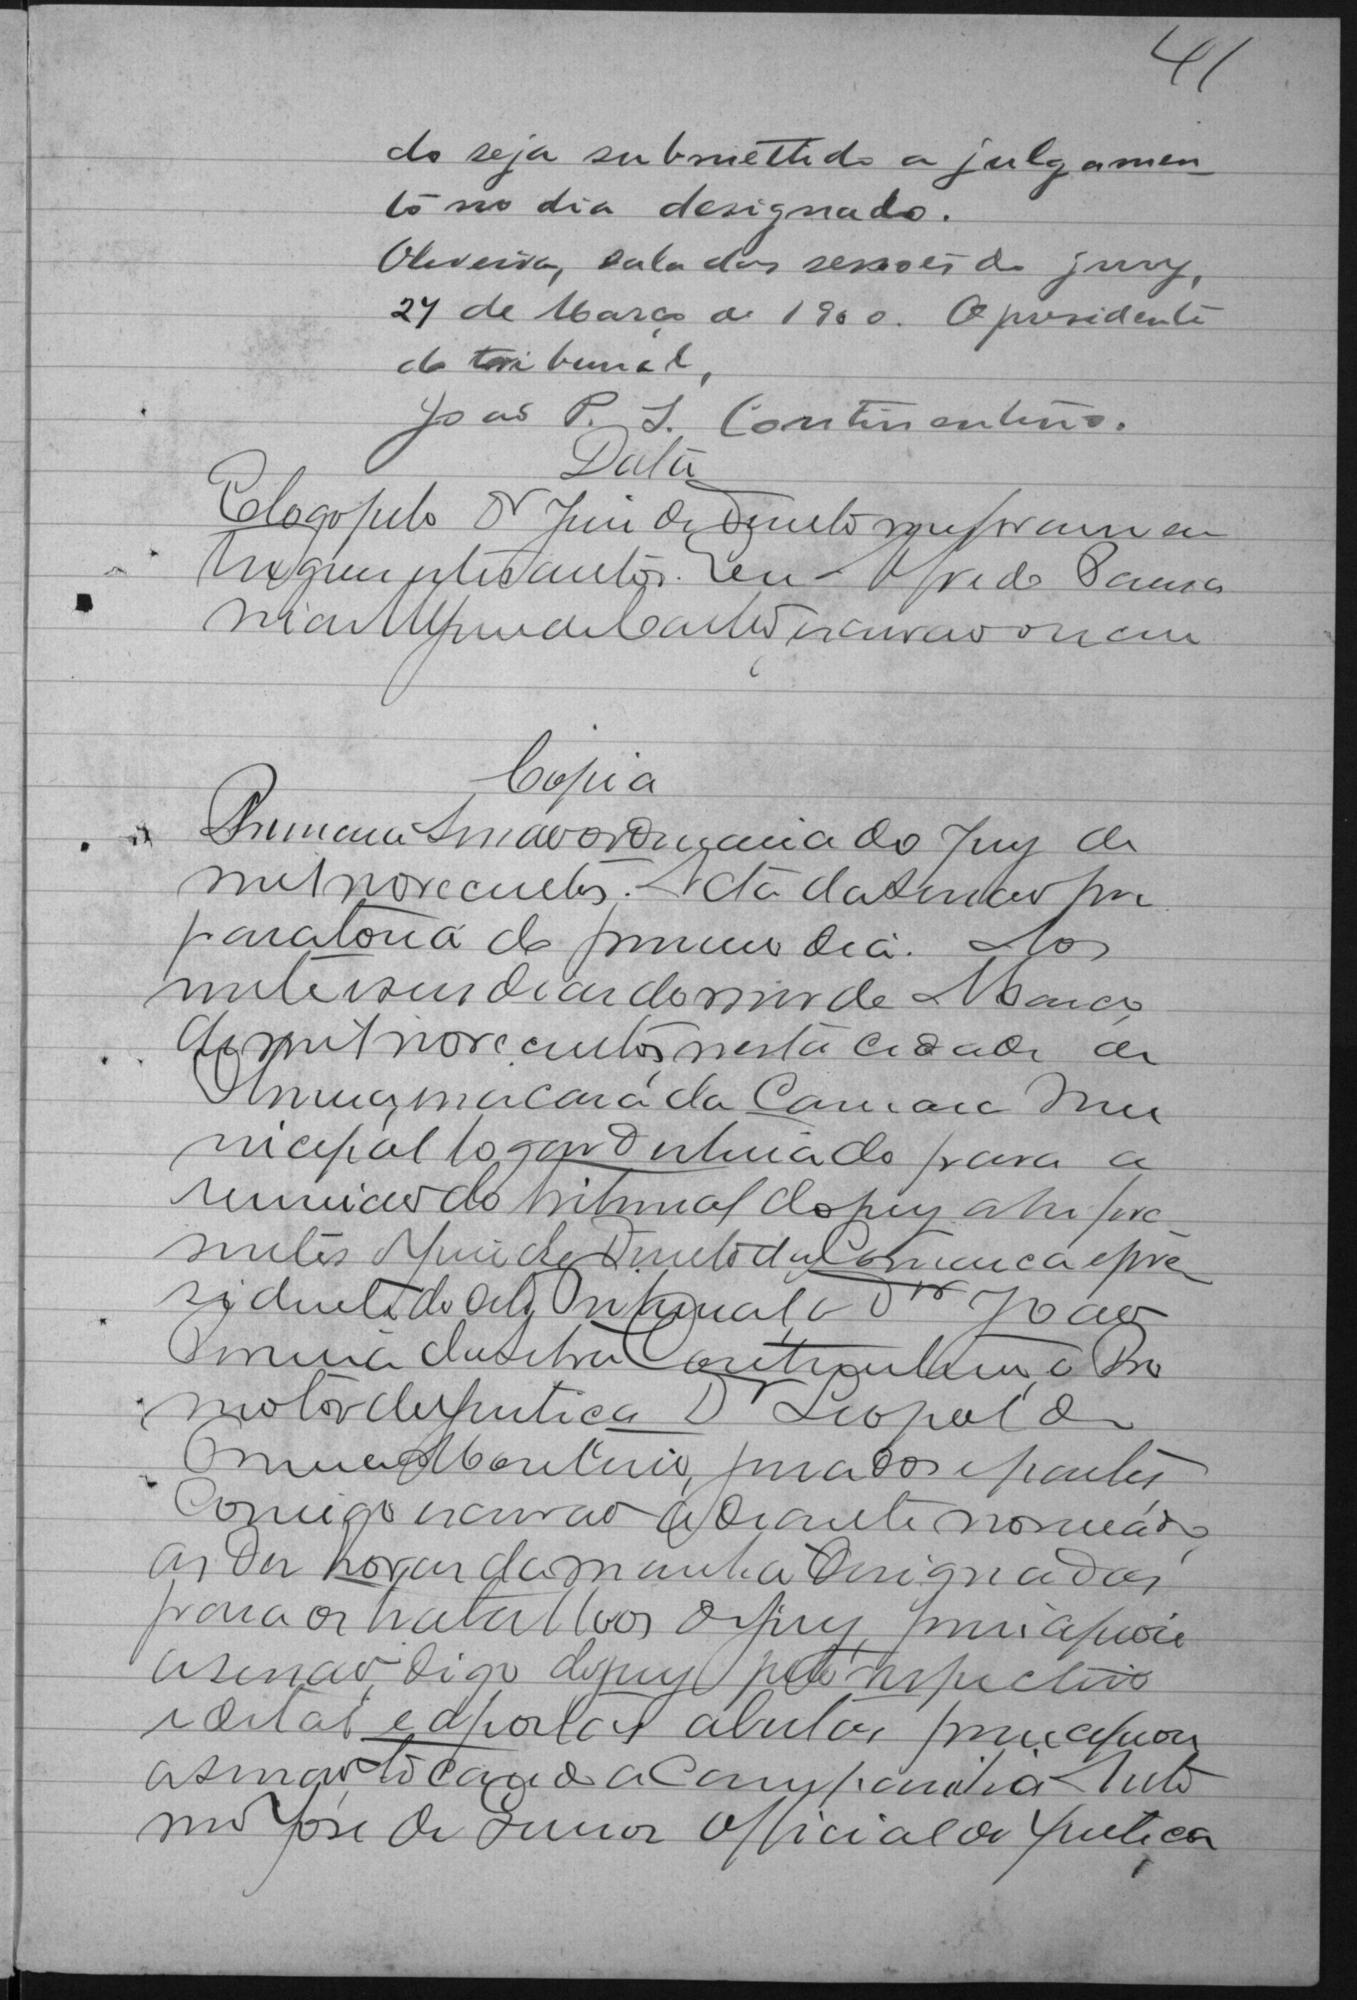 41
do seja submettido a julgamen
to no dia designado.
Oliveira, sala das sessões do jury,
27 de Março de 1900. O presidente
do tribunal,
João P. S. Continentino.
Data
E logo pelo Dr Juiz de Direito me foram en
tregues estes autos. Eu Alfredo
de Castro escrivão o escrevi
Copia
Primeira Sessão ordinaria do Jury de
mil novecentos. Acta da Sessão pre
paratoria do primeiro dia. Aos
vinte e seis dias do mes de Março
de mil novecentos, nesta cidade de
Oliveira, em casa da Camara Mu
nicipal logar destinado para a
reunião do tribunal do jury ahi pre
sentes o Juiz de Direito da Comarca e pre
sidente do dito Tribunal, o Dr João
Pereira da Silva Continentino, o Pro
motor de Justiça Dr Leopoldo
Monteiro, jurados e partes
Comigo escrivão adiante nomeado,
as dez horas da manhã designadas
para os trabalhos do jury, principiou
a sessão, digo do jury pelo respectivo
edital e a portas abertas principiou
a sessão tocando a Campainha Anto
nio José de Official de Justiça